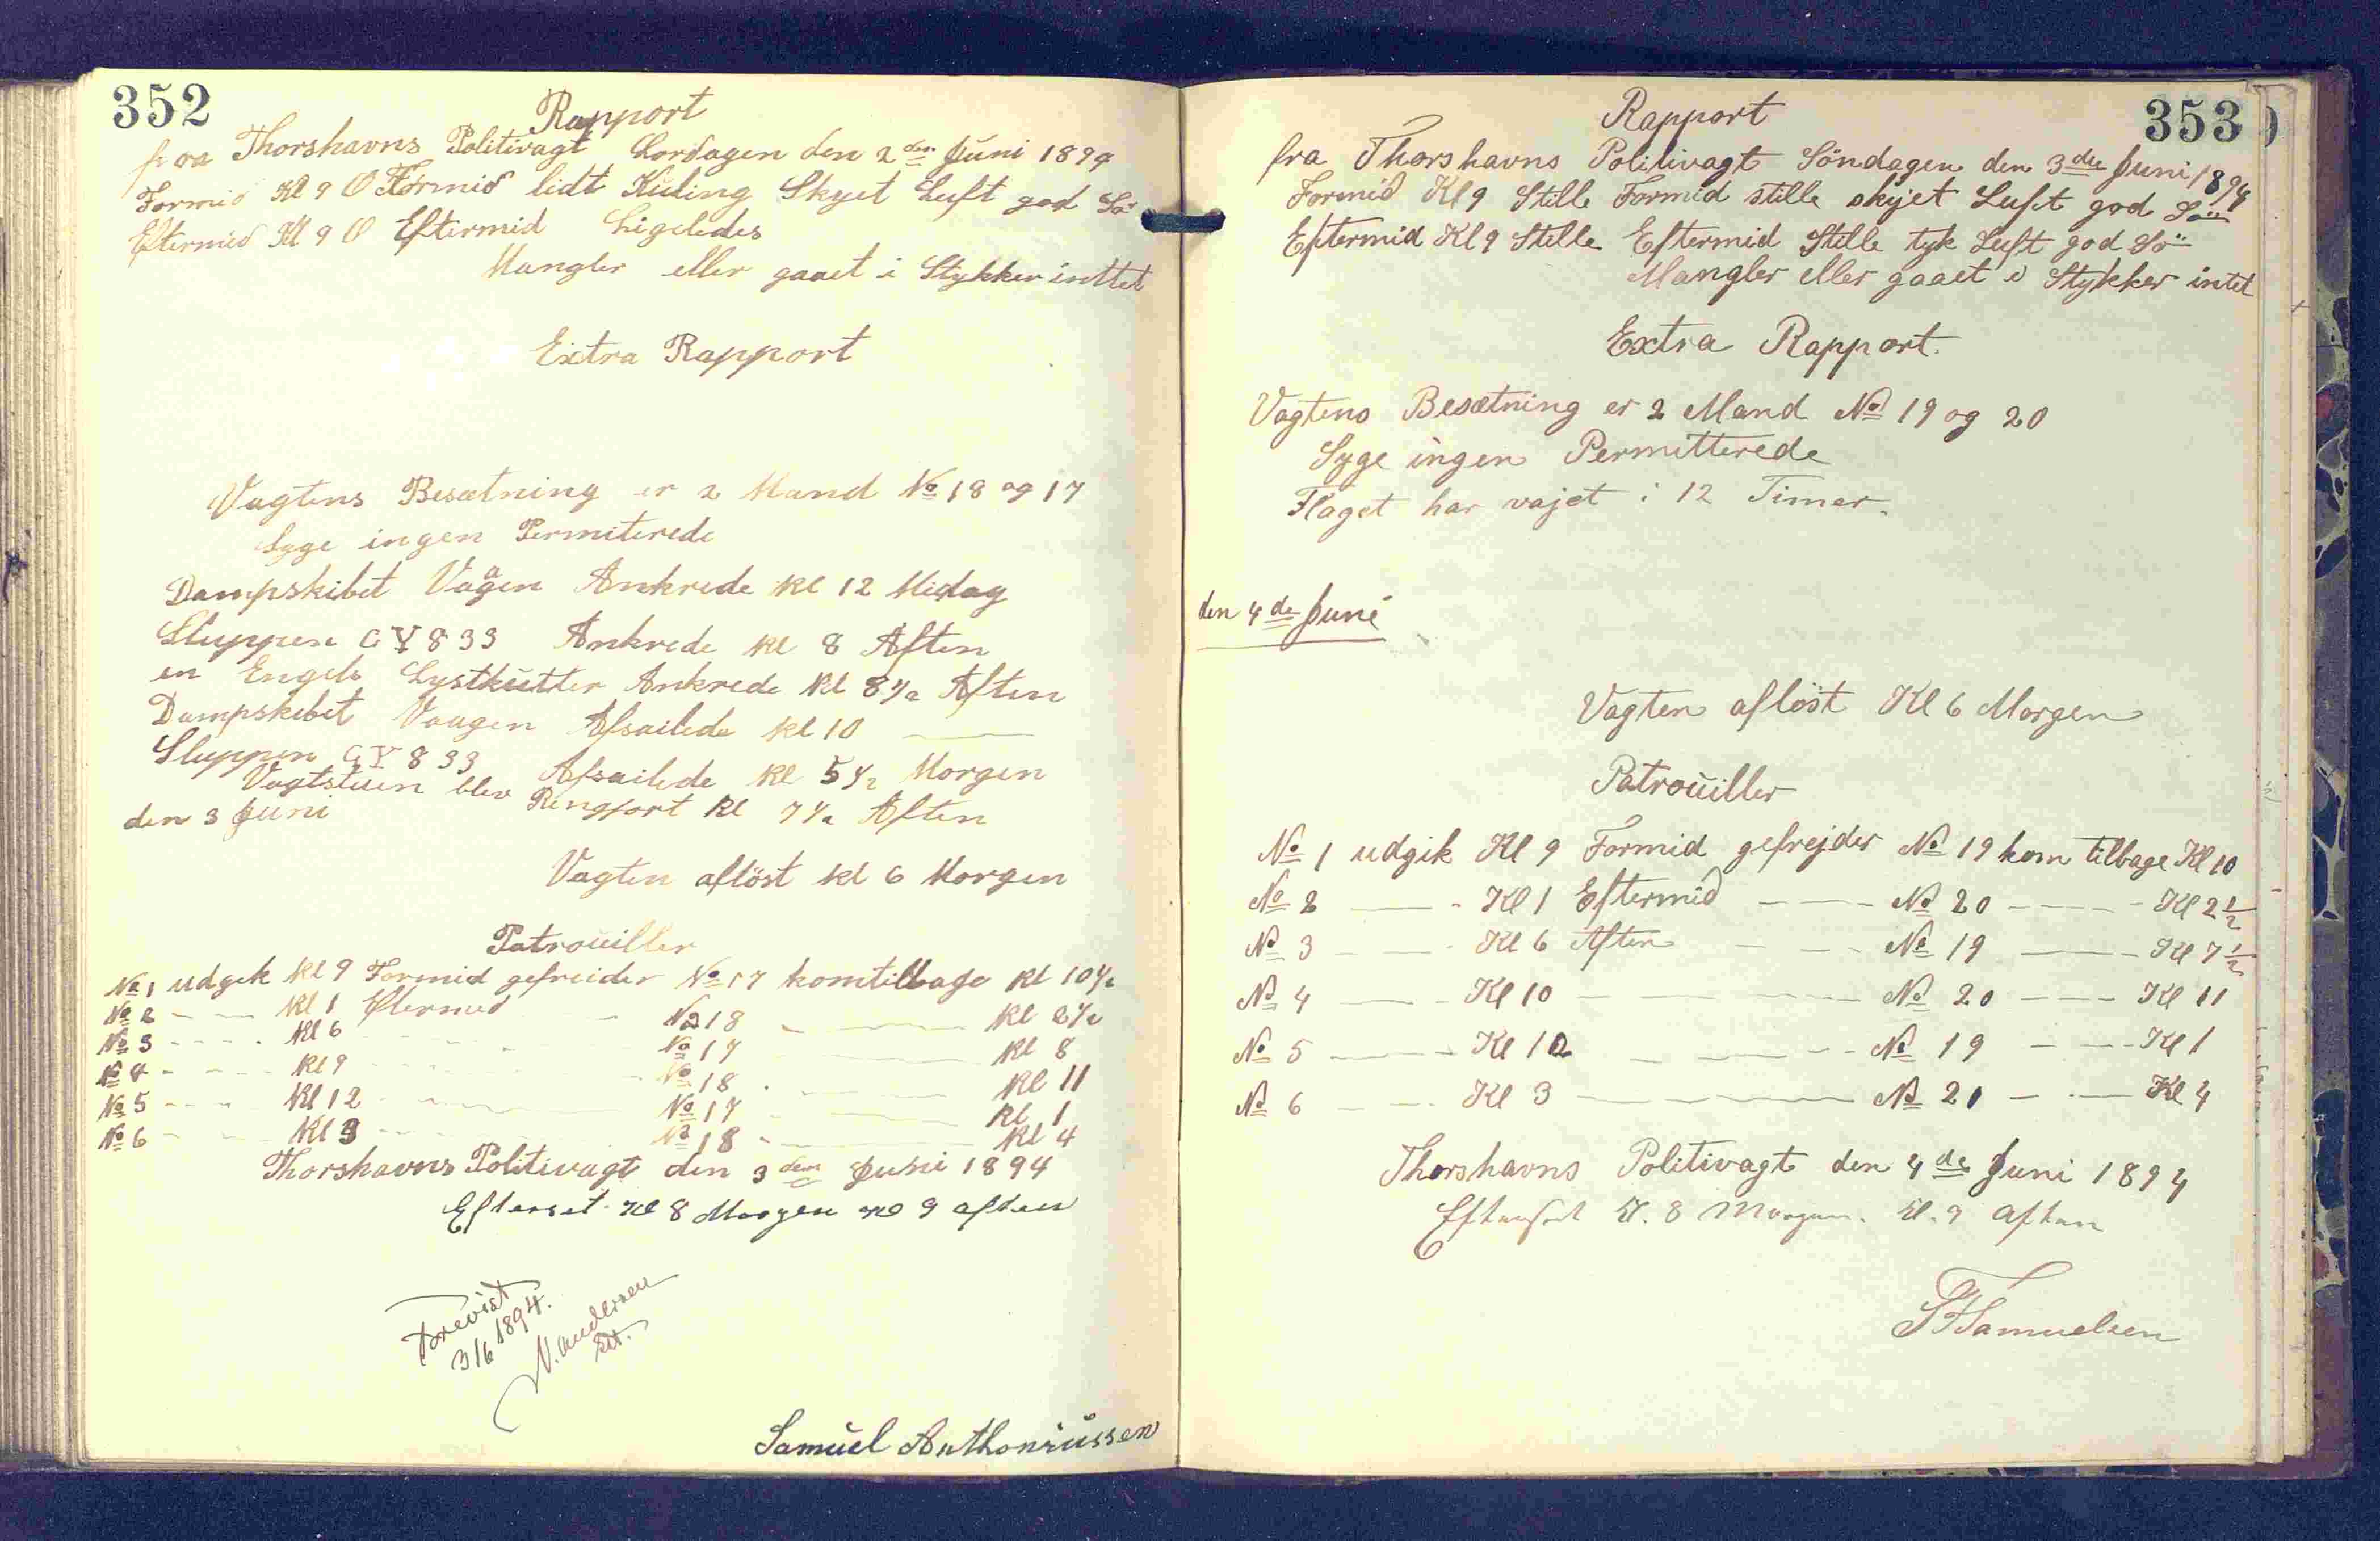 352
Rapport
fraa Thorshavns Politivagt Lordagen den 2den Juni 1894
Formid Kl 9 O Formid lidt Kuling Skyet Luft god Sö
Eftermid Kl 9 O Eftermid Ligeledes
Mangler eller gaaet i Stykker inttet
Extra Rapport
Vagtens Besætning er 2 Mand No 18 og 17
Syge ingen Permiterede
Dampskibet Vaagen Ankrede kl 12 Midag
Sluppen GY 833 Ankrede kl 8 Aften
en Engels Lystkutter Ankrede Kl 8 1/2 Aften
Dampskebet Vaagen Afsailede kl 10 —
Sluppen GY 833 Afsailede kl 5 1/2 Morgen
Vagtstuen blev Rengjort kl 7 1/2 Aften
den 3 Juni
Vagten aflöst kl 6 Morgen
Patrouiller
No 1 udgik kl 9 Formid gefreider No 17 kom tilbage kl 10 1/2
No 2 — kl 1 Eftermid — No 18 — kl 2 1/2
No 3 — kl 6 — No 17 — kl 8
No 4 — kl 9 — No 18 — kl 11
No 5 — kl 12 — No 17 — kl 1
No 6 — kl 3 — No 18 — kl 4
Thorshavns Politivagt den 3den Juni 1894
Efterset Kl 8 Morgen Kl 9 aften
Forevist
3/6 1894.
N. Andersen
Samuel Anthoniussen
353
Rapport
fra Thorshavns Politivagt Söndagen den 3de Juni 1894
Formid Kl 9 Stille Formid stille skyet Luft god Sö
Eftermid Kl 9 Stille Eftermid Stille tyk Luft god Sö
Mangler eller gaaet i Stykker intet
Extra Rapport.
Vagtens Besætning er 2 Mand No 19 og 20
Syge ingen Permitterede
Flaget har vajet i 12 Timer.
den 4de Juni
Vagten aflöst Kl 6 Morgen
Patrouiller
No 1 udgik Kl 9 Formid gefrejder No 19 kom tilbage Kl 10
No 2 — Kl 1 Eftermid — No 20 — Kl 2 1/2
No 3 — Kl 6 Aften — No 19 — Kl 7 1/2
No 4 — Kl 10 — No 20 — Kl 11
No 5 — Kl 12 — No 19 — Kl 1
No 6 — Kl 3 — No 20 — Kl 4
Thorshavns Politivagt den 4de Juni 1894
Efterset Kl. 8 Morgen. Kl. 9 Aften
Samuelsen